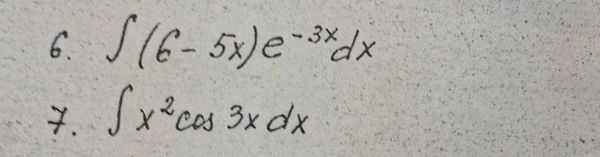 6. ∫(6 - 5x)e⁻³ˣdx
7. ∫x²cos 3x dx